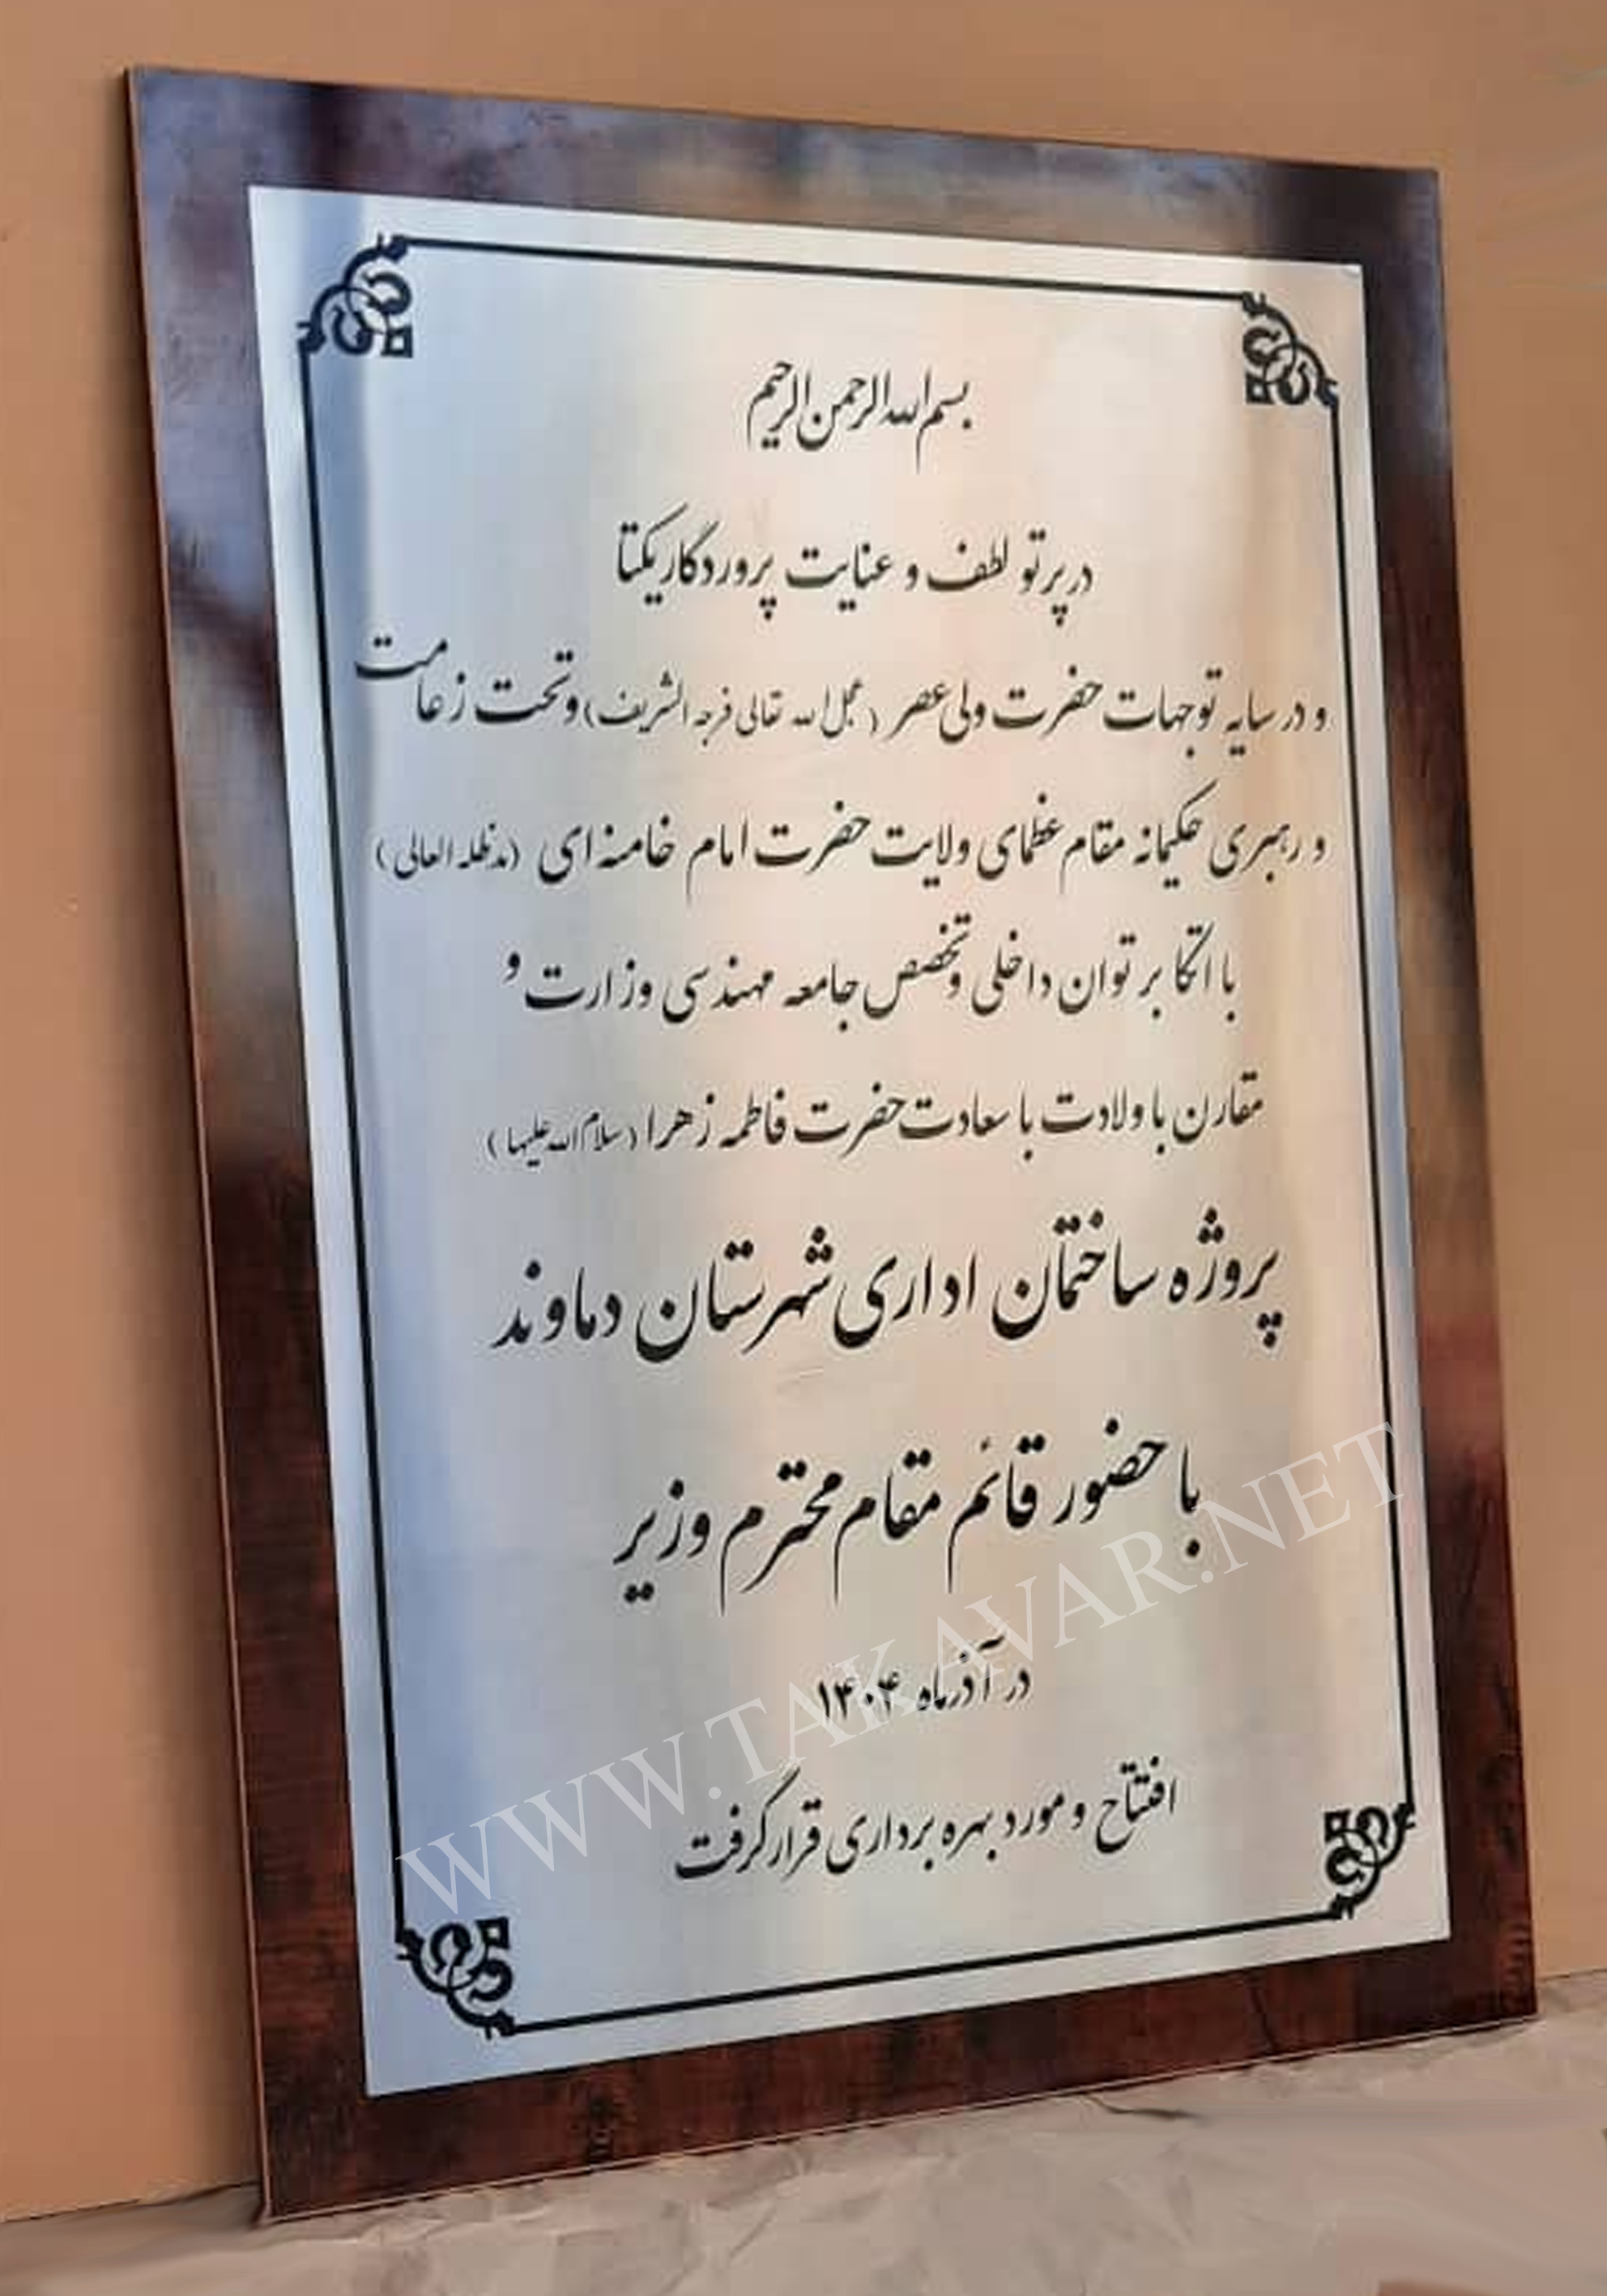 بسم الله الرحمن الرحیم
در پرتو لطف و عنایت پروردگار یکتا
و در سایه توجهات حضرت ولی عصر (عجل الله تعالی فرجه الشریف) و تحت زعامت
و رهبری حکیمانه مقام عظمای ولایت حضرت امام خامنه ای (مدظله العالی)
با اتکا بر توان داخلی و تخصص جامعه مهندسی وزارت و
مقارن با ولادت با سعادت حضرت فاطمه زهرا (سلام الله علیها)
پروژه ساختمان اداری شهرستان دماوند
با حضور قائم مقام محترم وزیر
در آذرماه ۱۴۰۴
افتتاح و مورد بهره برداری قرار گرفت
WWW.TAKAVAR.NET